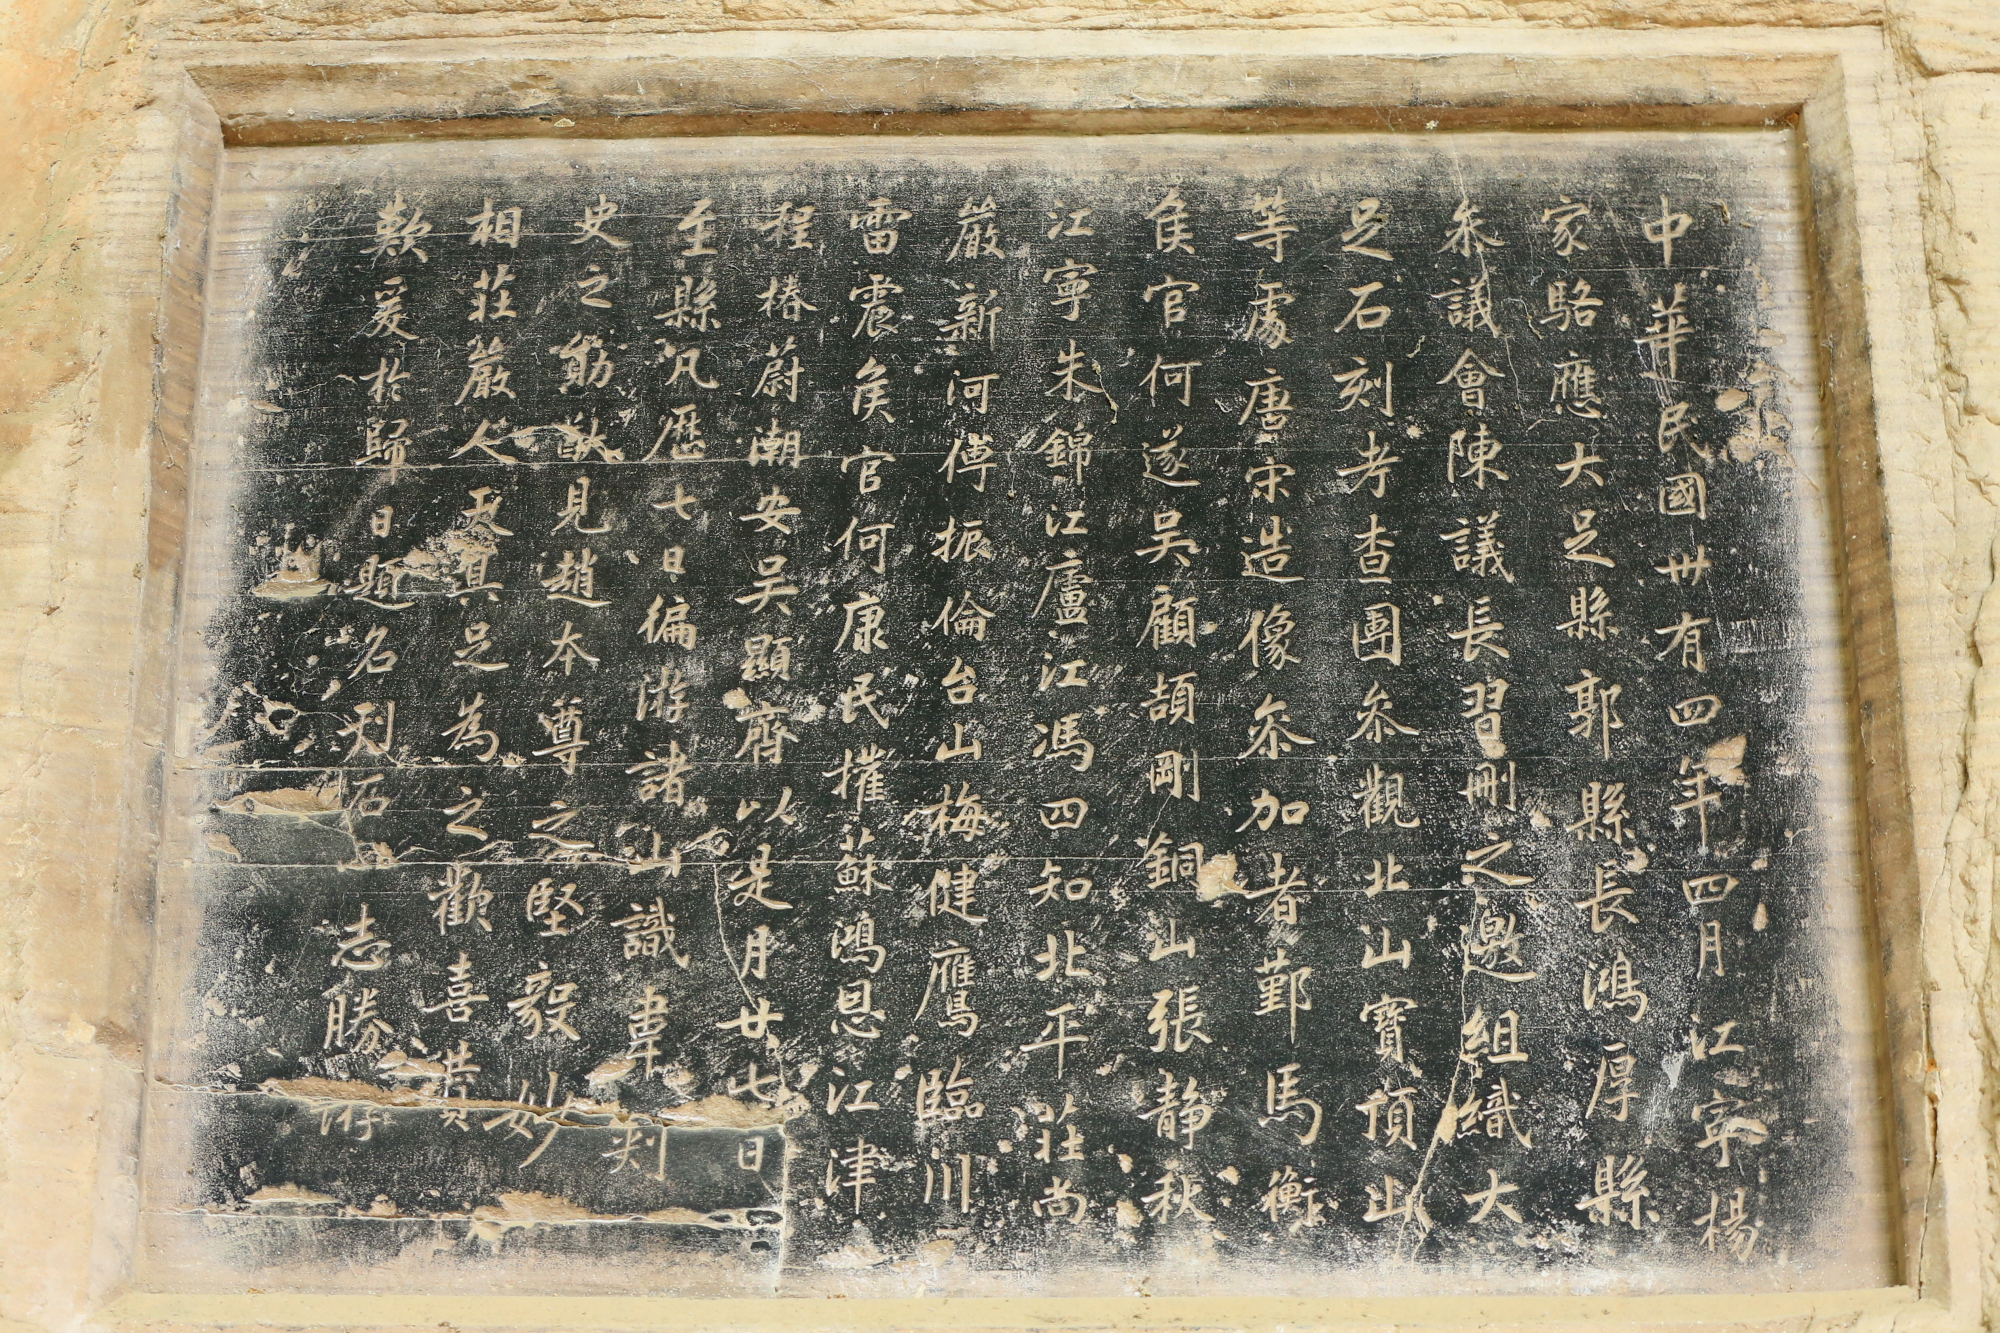 中華民國卅有四年四月江寧楊
家駱應大足縣郭縣長鴻厚縣
叅議會陳議長習刪之邀組織大
足石刻考查團叅觀北山寶頂山
等處唐宋造像叅加者鄞馬衡
矦官何遂吳顧頡剛銅山張静秋
江寧朱錦江廬江馮四知北平莊尚
嚴新河傅振倫台山梅健鷹臨川
雷震矦官何康民摧蘇鴻恩江津
程椿蔚潮安吳顯齊以是月廿七日
至縣凡歷七日徧游諸山識韋刺
史之勛猷見趙本尊之堅毅妙
相莊嚴人天真足為之歡喜讚
歎爰於歸日題名刋石志勝游